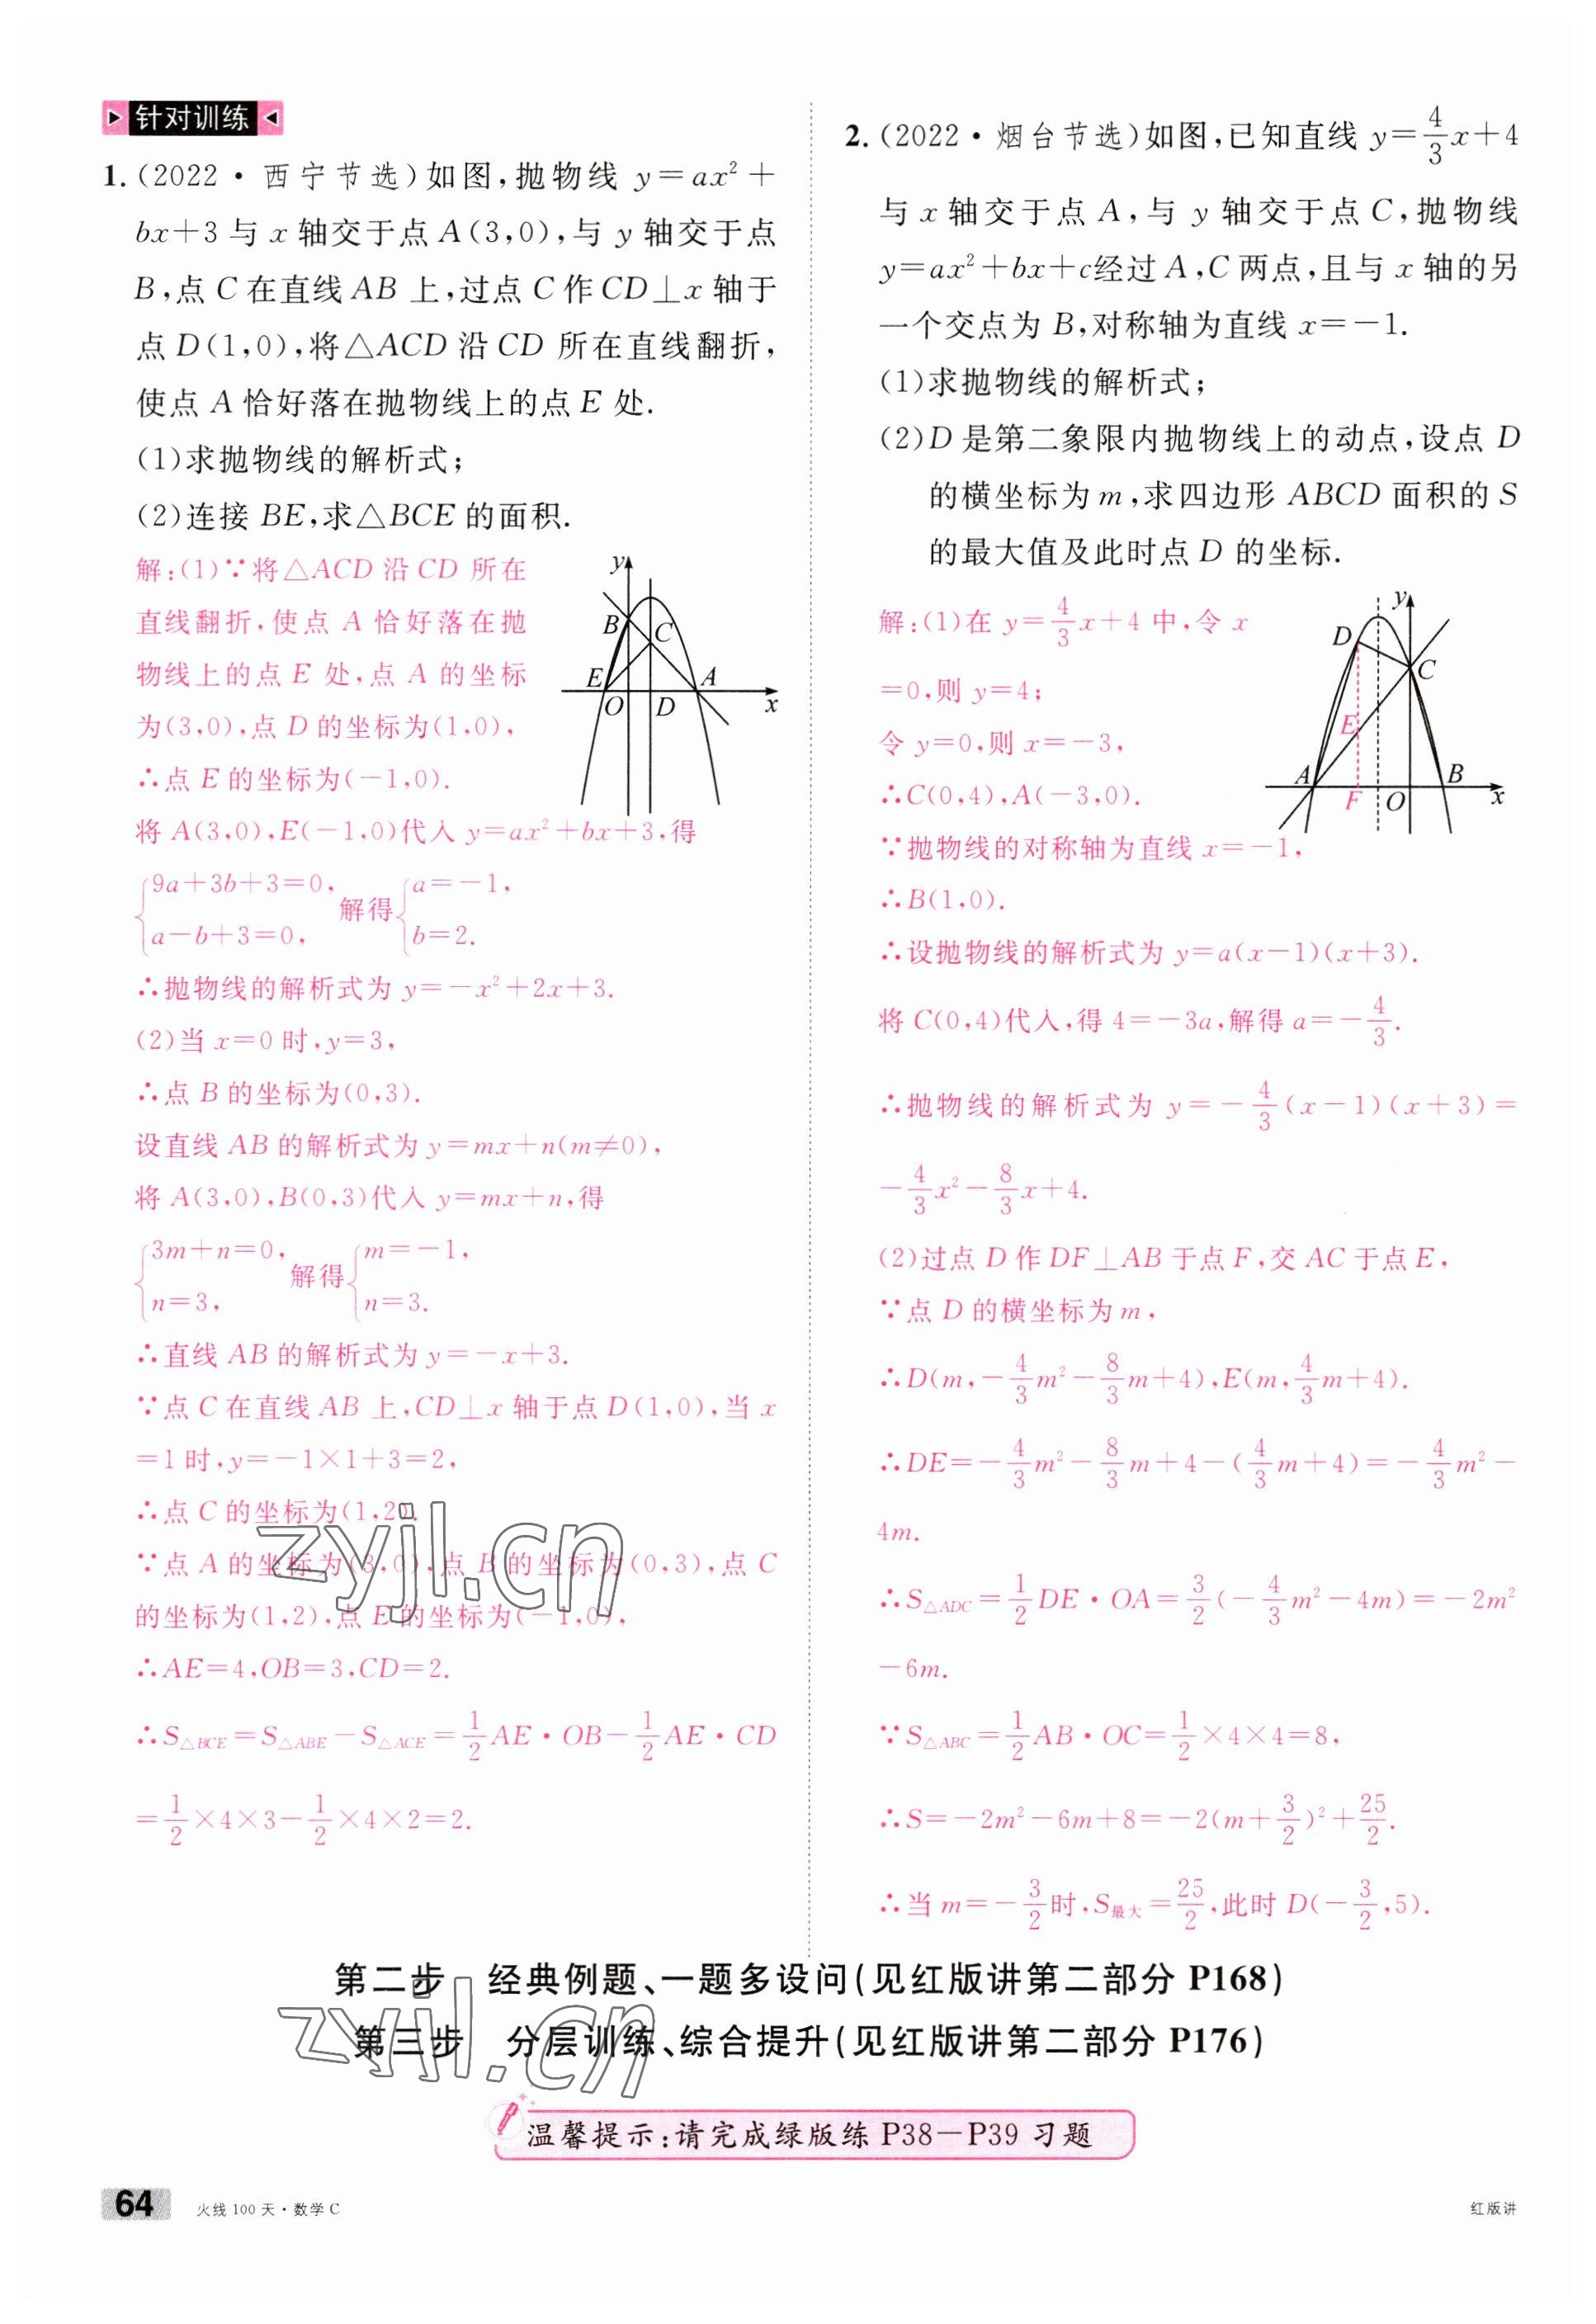 针对训练
1.(2022·西宁节选)如图,抛物线 y=ax²+
bx+3 与 x 轴交于点 A(3,0),与 y 轴交于点
B,点 C 在直线 AB 上,过点 C 作 CD⊥x 轴于
点 D(1,0),将△ACD 沿 CD 所在直线翻折,
使点 A 恰好落在抛物线上的点 E 处.
(1)求抛物线的解析式;
(2)连接 BE,求△BCE 的面积.
解:(1)∵将△ACD 沿 CD 所在
直线翻折,使点 A 恰好落在抛
物线上的点 E 处,点 A 的坐标
为(3,0),点 D 的坐标为(1,0),
∴点 E 的坐标为(-1,0).
y
B
C
E
A
O
D
x
将 A(3,0),E(-1,0)代入 y=ax²+bx+3,得
{9a+3b+3=0, 解得 {a=-1,
a-b+3=0, b=2.
∴抛物线的解析式为 y=-x²+2x+3.
(2)当 x=0 时,y=3,
∴点 B 的坐标为(0,3).
设直线 AB 的解析式为 y=mx+n(m≠0),
将 A(3,0),B(0,3)代入 y=mx+n,得
{3m+n=0, 解得 {m=-1,
n=3, n=3.
∴直线 AB 的解析式为 y=-x+3.
∵点 C 在直线 AB 上,CD⊥x 轴于点 D(1,0),当 x
=1 时,y=-1×1+3=2,
∴点 C 的坐标为(1,2).
∵点 A 的坐标为(3,0),点 B 的坐标为(0,3),点 C
的坐标为(1,2),点 E 的坐标为(-1,0),
∴AE=4,OB=3,CD=2.
∴S△BCE=S△ABE-S△ACE=1/2 AE·OB-1/2 AE·CD
=1/2×4×3-1/2×4×2=2.
2.(2022·烟台节选)如图,已知直线 y=4/3 x+4
与 x 轴交于点 A,与 y 轴交于点 C,抛物线
y=ax²+bx+c经过 A,C 两点,且与 x 轴的另
一个交点为 B,对称轴为直线 x=-1.
(1)求抛物线的解析式;
(2)D 是第二象限内抛物线上的动点,设点 D
的横坐标为 m,求四边形 ABCD 面积的 S
的最大值及此时点 D 的坐标.
解:(1)在 y=4/3 x+4 中,令 x
=0,则 y=4;
令 y=0,则 x=-3,
∴C(0,4),A(-3,0).
y
D
C
E
A
B
F
O
x
∵抛物线的对称轴为直线 x=-1,
∴B(1,0).
∴设抛物线的解析式为 y=a(x-1)(x+3).
将 C(0,4)代入,得 4=-3a,解得 a=-4/3.
∴抛物线的解析式为 y=-4/3(x-1)(x+3)=
-4/3 x²-8/3 x+4.
(2)过点 D 作 DF⊥AB 于点 F,交 AC 于点 E,
∵点 D 的横坐标为 m,
∴D(m,-4/3 m²-8/3 m+4),E(m,4/3 m+4).
∴DE=-4/3 m²-8/3 m+4-(4/3 m+4)=-4/3 m²-
4m.
∴S△ADC=1/2 DE·OA=3/2(-4/3 m²-4m)=-2m²
-6m.
∵S△ABC=1/2 AB·OC=1/2×4×4=8,
∴S=-2m²-6m+8=-2(m+3/2)²+25/2.
∴当 m=-3/2时,S最大=25/2,此时 D(-3/2,5).
zyjl.cn
第二步 经典例题、一题多设问(见红版讲第二部分 P168)
第三步 分层训练、综合提升(见红版讲第二部分 P176)
zyjl.cn
温馨提示:请完成绿版练 P38—P39 习题
64 火线 100 天·数学 C
红版讲